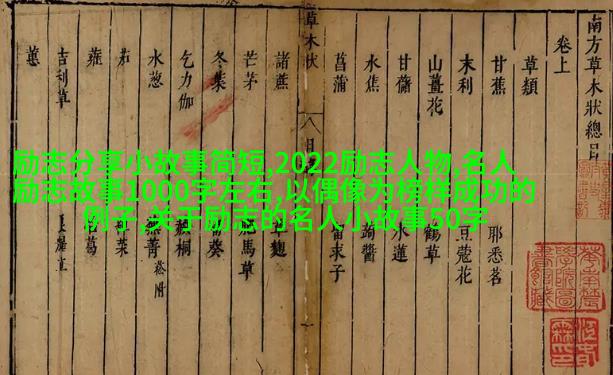 励志分享小故事简短,2022励志人物,名人
励志故事1000字左右,以偶像为榜样成功的
例子,关于励志的名人小故事50字
南方草木狀總目
卷上
草類
甘蕉 耶悉茗
末利 豆蔻花
山薑花 鶴草
甘藷 水蓮
水蕉 蒟醬
菖蒲 留求子
草木狀 八目
諸蔗 草麴
芒茅 馬草
冬 葵
乞力伽 桐
水葱 蕪菁 菘附
茄 菜
蕹 葛
吉利草
蕙